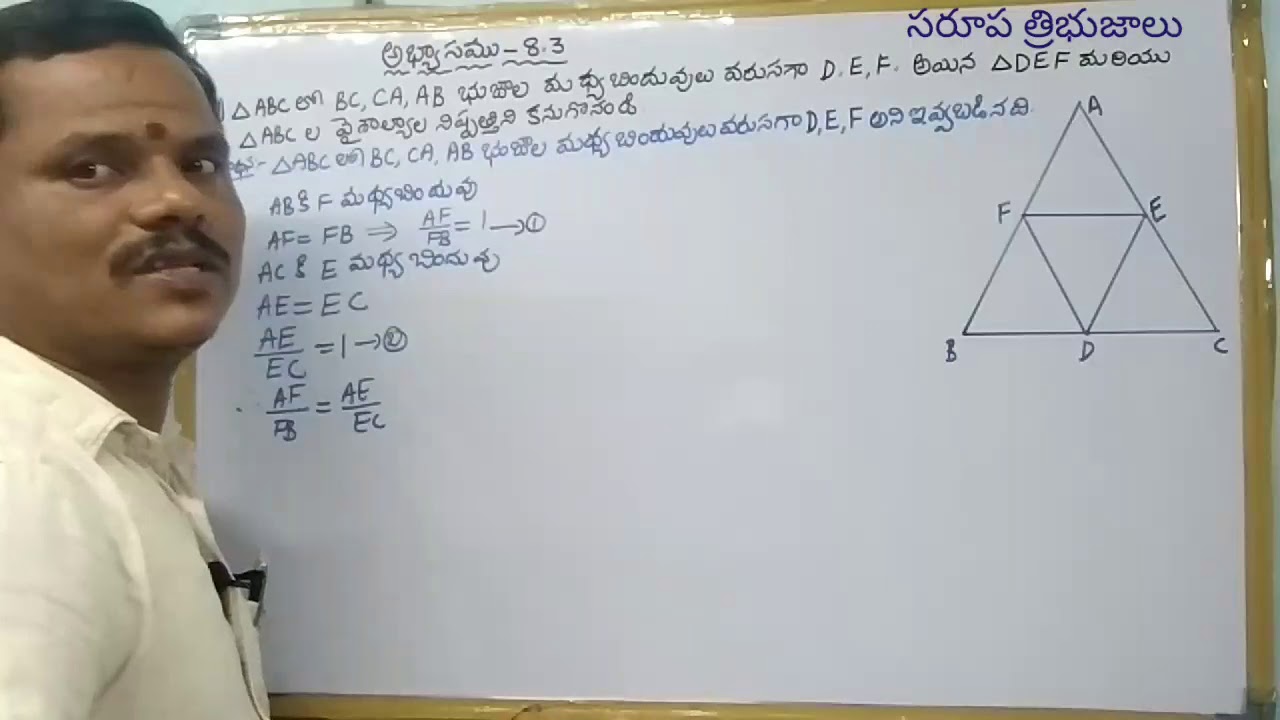 సరూప త్రిభుజాలు
అభ్యాసము - 8.3
△ABC లో BC, CA, AB భుజాల మధ్య బిందువులు వరుసగా D, E, F. అయిన △DEF మరియు
△ABC ల వైశాల్యాల నిష్పత్తిని కనుగొనండి
△ABC లో BC, CA, AB భుజాల మధ్య బిందువులు వరుసగా D, E, F అని ఇవ్వబడినది.
ABకి F మధ్యబిందువు
AF = FB ⟹ AF/FB = 1 → ①
ACకి E మధ్యబిందువు
AE = EC
AE/EC = 1 → ②
∴ AF/FB = AE/EC
A
F E
B D C